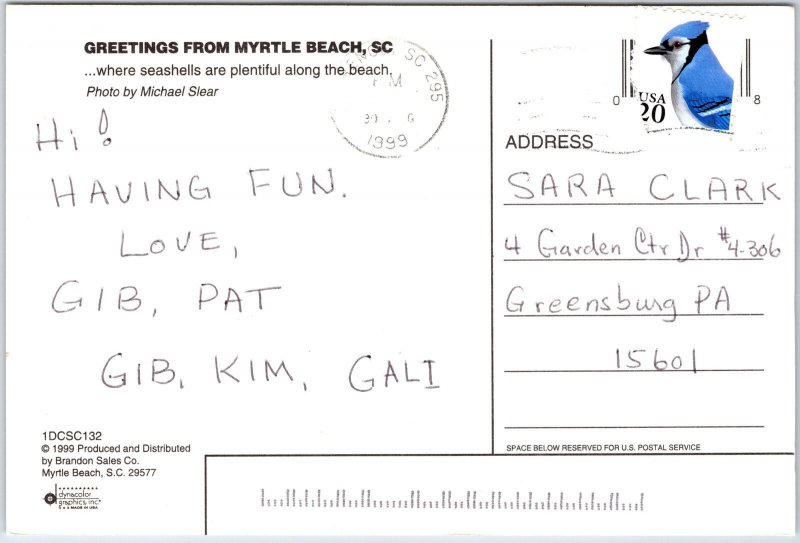 GREETINGS FROM MYRTLE BEACH, SC
...where seashells are plentiful along the beach.
Photo by Michael Slear
SC 295
PM
1999
USA
20
0
8
Hi!
HAVING FUN.
LOVE,
GIB, PAT
GIB, KIM, GALI
ADDRESS
SARA CLARK
4 Garden Ctr Dr #4-306
Greensburg PA
15601
SPACE BELOW RESERVED FOR U.S. POSTAL SERVICE
1DCSC132
© 1999 Produced and Distributed
by Brandon Sales Co.
Myrtle Beach, S.C. 29577
dynacolor
graphics, inc.
MADE IN USA